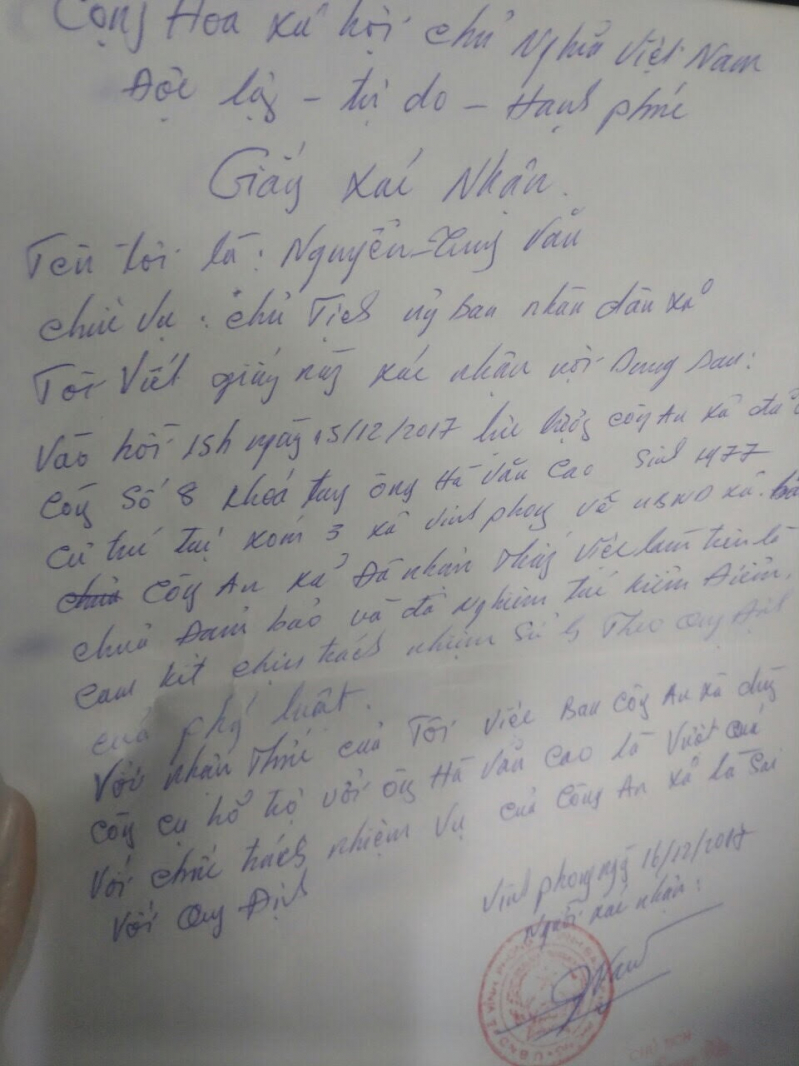 Cộng Hoà xã hội chủ Nghĩa Việt Nam
Độc lập - tự do - Hạnh phúc
Giấy xác Nhận.
Tên tôi là: Nguyễn Trung Vấn
chức vụ: chủ Tịch uỷ Ban nhân dân xã
Tôi Viết giấy này xác nhận nội Dung sau:
Vào hồi 15h ngày 15/12/2017 lực lượng công An xã đã
Còng Số 8 khoá tay ông Hà Văn Cao Sinh 1977
Cư trú tại xóm 3 xã Vĩnh phong về UBND xã.
Công An xã Đã nhận Thấy Việc làm trên là
chưa Đảm bảo và đã Nghiêm túc kiểm Điểm.
Cam kết chịu trách nhiệm Theo Quy Định
của pháp luật.
Với nhận Thức của Tôi Việc Ban Công An xã dùng
công cụ hổ trợ với ông Hà Văn Cao là Vượt Quá
Với chức trách nhiệm Vụ của Công An xã là Sai
Với Quy Định
Vĩnh phong ngày 16/12/2017
Người xác nhận:
CHỦ TỊCH